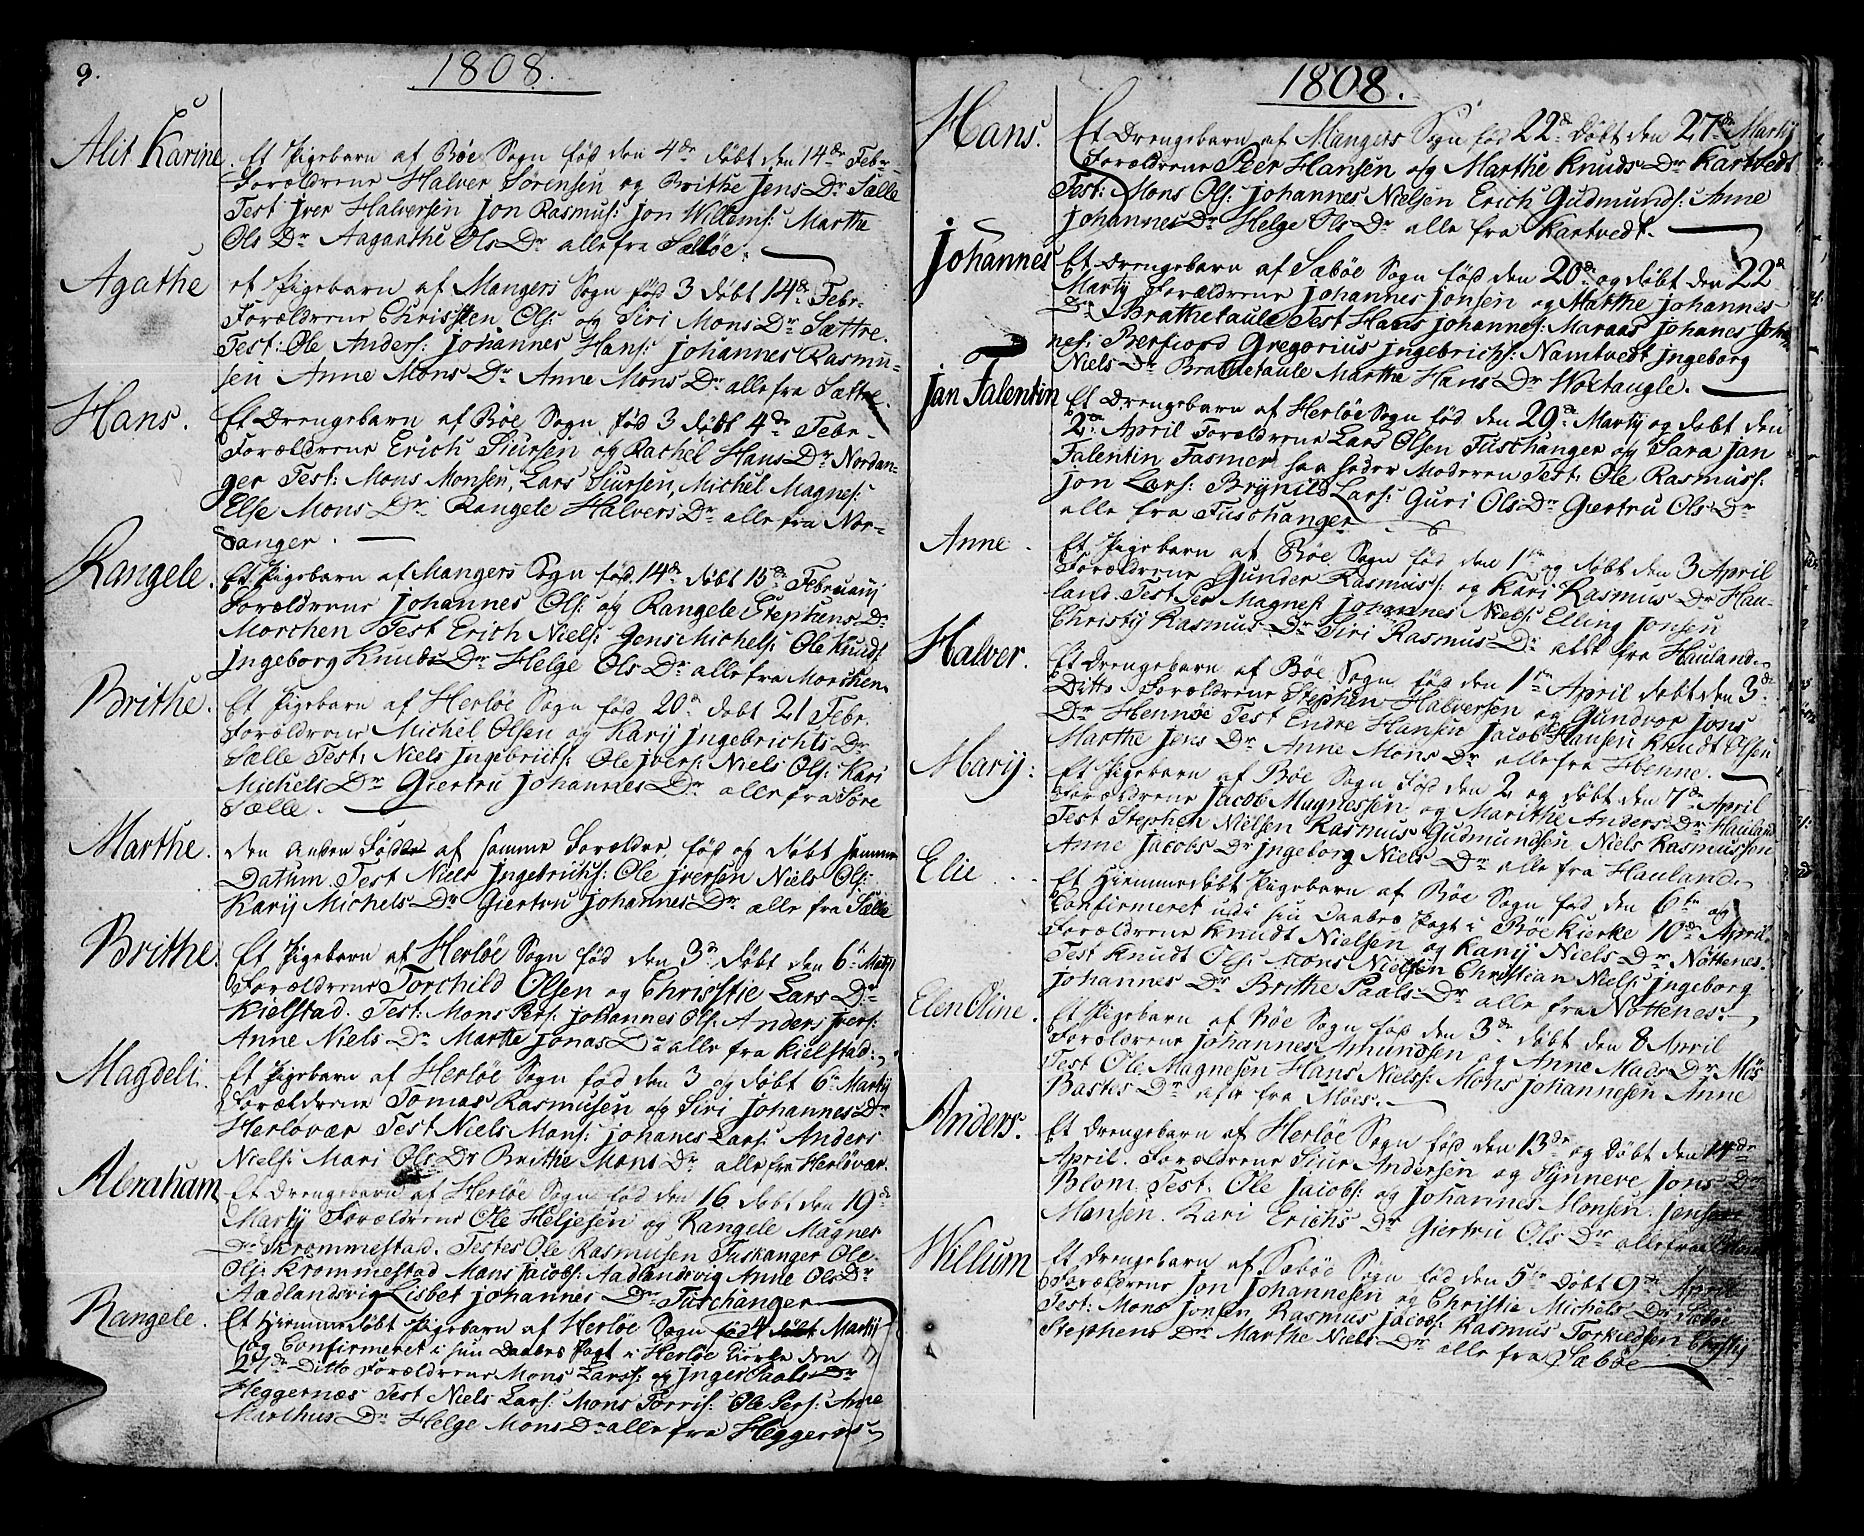 9.
1808.
Alit Karine. Et Pigebarn af Bøe Sogn fød den 4de døbt den 14de Febr.
Forældrene Halver Sørensen og Brithe Jens Dr Sælle
Test Jver Halversen Jon Rasmus: Jon Willoms: Marthe
Ols Dr Aagaathe Ols Dr alle fra Sæløe.
Agathe et Pigebarn af Mangers Sogn fød 3 døbt 14de Febr.
Forældrene Christen Ols: og Siri Mons Dr Sættre.
Test: Ole Anders: Johannes Hans: Johannes Rasmu-
sen Anne Mons Dr Anne Mons Dr alle fra Sættre.
Hans. Et Drengebarn af Bøe Sogn fød 3 døbt 4de Febr.
Forældrene Erich Siursen og Rachel Hans Dr Nordan-
ger Test: Mons Monsen, Lars Siursen, Michel Magnes:
Else Mons Dr Rangele Halvers Dr alle fra Nor-
danger.
Rangele. Et Pigebarn af Mangers Sogn fød 14de døbt 15de Februarij
Forældrene Johannes Ols: og Rangele Stephens Dr
Morchen Test Erich Niels: Jens Michels: Ole Knuds:
Jngeborg Knuds Dr Helge Ols Dr alle fra Morchen
Brithe. Et Pigebarn af Herløe Sogn fød 20de døbt 21 Febr.
Forældrene Michel Olsen og Karij Jngebrichts Dr
Sælle Test: Niels Jngebricts: Ole Jvers: Niels Ols: Kari
Michels Dr Giertru Johannes Dr alle fra Søre
Sælle.
Marthe. den anden Fødde af samme Forældre, fød og døbt samme
Datum. Test Niels Jngebricts: Ole Jversen Niels Ols:
Karij Michels Dr Giertru Johannes Dr alle fra Sælle
Brithe. Et Pigebarn af Herløe Sogn fød den 3de døbt den 6te Martij
Forældrene Torchild Olsen og Christie Lars Dr
Kielstad. Test: Mons Pers: Johannes Ols: Anders Jvers:
Anne Niels Dr Marthe Jonas Dr alle fra Kielstad.
Magdeli. Et Pigebarn af Herløe Sogn fød den 3 og døbt 6te Martij
Forældrene Tomas Rasmusen og Siri Johannes Dr
Herlovær Test Niels Mons: Johanes Lars: Anders
Niels: Mari Ols Dr Brithe Mons Dr alle fra Herløvær.
Abraham Et Drengebarn af Herløe Sogn fød den 16 døbt den 19de
Martij Forældrene Ole Heljesen og Rangele Magnes
Dr Krommestad. Testes Ole Rasmusen Tuskanger Ole
Ols: Krommestad Mons Jacobs: Aadlandsvig Anne Ols Dr
Aadlandsvig Lisbet Johannes Dr Tuschanger
Rangele. Et Hiemmedøbt Pigebarn af Herløe Sogn fød 4 Martij
og Confirmeret i sin Daabes Pagt i Herløe Kirke den
27de Ditto Forældrene Mons Larss: og Jnger Paals Dr
Heggernæs Test Niels Lars: Mons Torris: Ole Pers: Anne
Marthus Dr Helge Mons Dr alle fra Heggernæs
1808.
Hans. Et Drengebarn af Mangers Sogn fød 22de døbt den 27de Martij
Forældrene Peer Hansen og Marthe Knuds Dr Kartvedt
Test: Mons Ols: Johannes Nielsen Erich Gudmunds: Anne
Johannes Dr Helge Ols Dr alle fra Kartvedt.
Johannes Et Drengebarn af Sæbøe Sogn fød den 20de og døbt den 22de
Martij Forældrene Johannes Jonsen og Marthe Johannes
Dr Brattetaule Test Hans Johannes: Maraas Johanes Joh
nes: Berfiord Gregorius Jngebrichts: Namtvedt Jngeborg
Niels Dr Brattetaule Marthe Hans Dr Woltaugle.
Jan Falentin Et Drengebarn af Herløe Sogn fød den 29de Martij og døbt den
2den April Forældrene Lars Olsen Tuschanger og Sara Jan
Falentin Fasmer saa heder Moderen Test: Ole Rasmuss:
Jon Lars: Brÿnild Lars: Guri Ols Dr Giertru Ols Dr
alle fra Tuschanger
Anne. Et Pigebarn af Bøe Sogn fød den 1te og døbt den 3 April
Forældrene Gunder Rasmus: og Kari Rasmus Dr Hau-
land. Test Per Magnes: Johannes Niels: Elling Jonsen
Christij Rasmus Dr Siri Rasmus Dr alle fra Hauland
Halver. Et Drengebarn af Bøe Sogn fød den 1te April døbt den 3de
Ditto Forældrene Stephen Halversen og Gundvor Jons
Dr Hennøe Test Endre Hansen Jacob Hansen Knudt Olsen
Marthe Jens Dr Anne Mons Dr alle fra Henne.
Marij: Et Pigebarn af Bøe Sogn fød den 2 og døbt den 7de April
Forældrene Jacob Magnessen og Marithe Anders Dr Hauland
Test Stephen Nielsen Rasmus Gudmundsen Niels Rasmussen
Anne Jacobs Dr Jngeborg Niels Dr alle fra Hauland.
Elie Et Hiemmedøbt Pigebarn af Bøe Sogn fød den 6te og
Confirmeret udi sin Daabes Pagt i Bøe Kierke 10de April.
Forældrene Knudt Nielsen og Karij Niels Dr Nøttenes.
Test Knudt Ols: Mons Nielsen Christian Niels: Jngeborg
Johannes Dr Brithe Paals Dr alle fra Nøttenes.
Elen Oline. Et Pigebarn af Bøe Sogn fød den 3de døbt den 8 April
Forældrene Johannes Amundsen og Anne Mads Dr Møs
Test Ole Magnesen Hans Nielss: Mons Johannesen Anne
Bastes Dr alle fra Møes.
Anders. Et Drengebarn af Herløe Sogn fød den 13de og døbt den 14de
April. Forældrene Siur Andersen og Synneve Jons Dr
Blom. Test. Ole Jacobs: og Johannes Monsen Jens
Monsen. Kari Erichs Dr Giertru Ols Dr alle fra Blom
Willum Et Drengebarn af Sæbøe Sogn fød den 5te døbt 9de April
Forældrene Jon Johannesen og Christie Michels Dr Sæbøe
Test: Mons Jonsen Rasmus Jacobs: Rasmus Torkildsen Christij
Stephens Dr Marthe Niels Dr alle fra Sæbøe